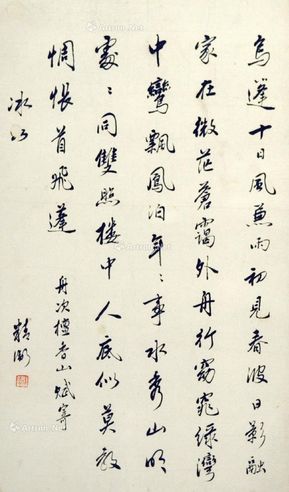 烏蓬十日風兼雨初見春波日影融
家在微茫蒼靄外舟行窈窕綠灣
中鸞飄鳳泊年〻事水秀山明
處〻同雙照樓中人底似莫教
惆悵首飛蓬 舟次檀香山賦寄
冰如 精衛